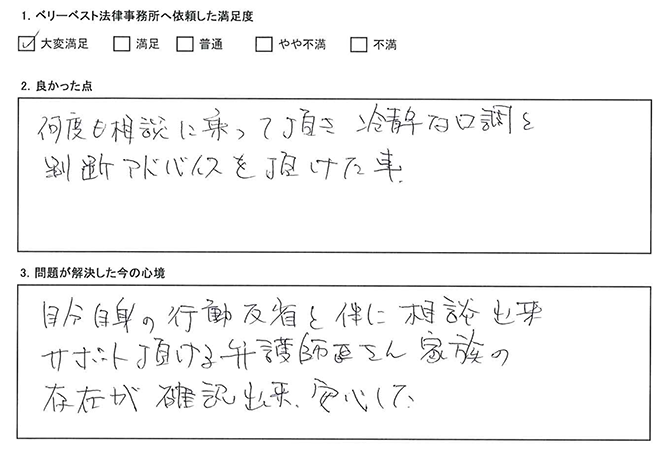 1. ベリーベスト法律事務所へ依頼した満足度
☑ 大変満足 □ 満足 □ 普通 □ やや不満 □ 不満
2. 良かった点
何度も相談に乗って頂き 冷静な口調と
判断アドバイスを頂けた事.
3. 問題が解決した今の心境
自分自身の行動反省と伴に 相談出来
サポート頂ける弁護師 さん 家族の
存在が 確認出来、安心した